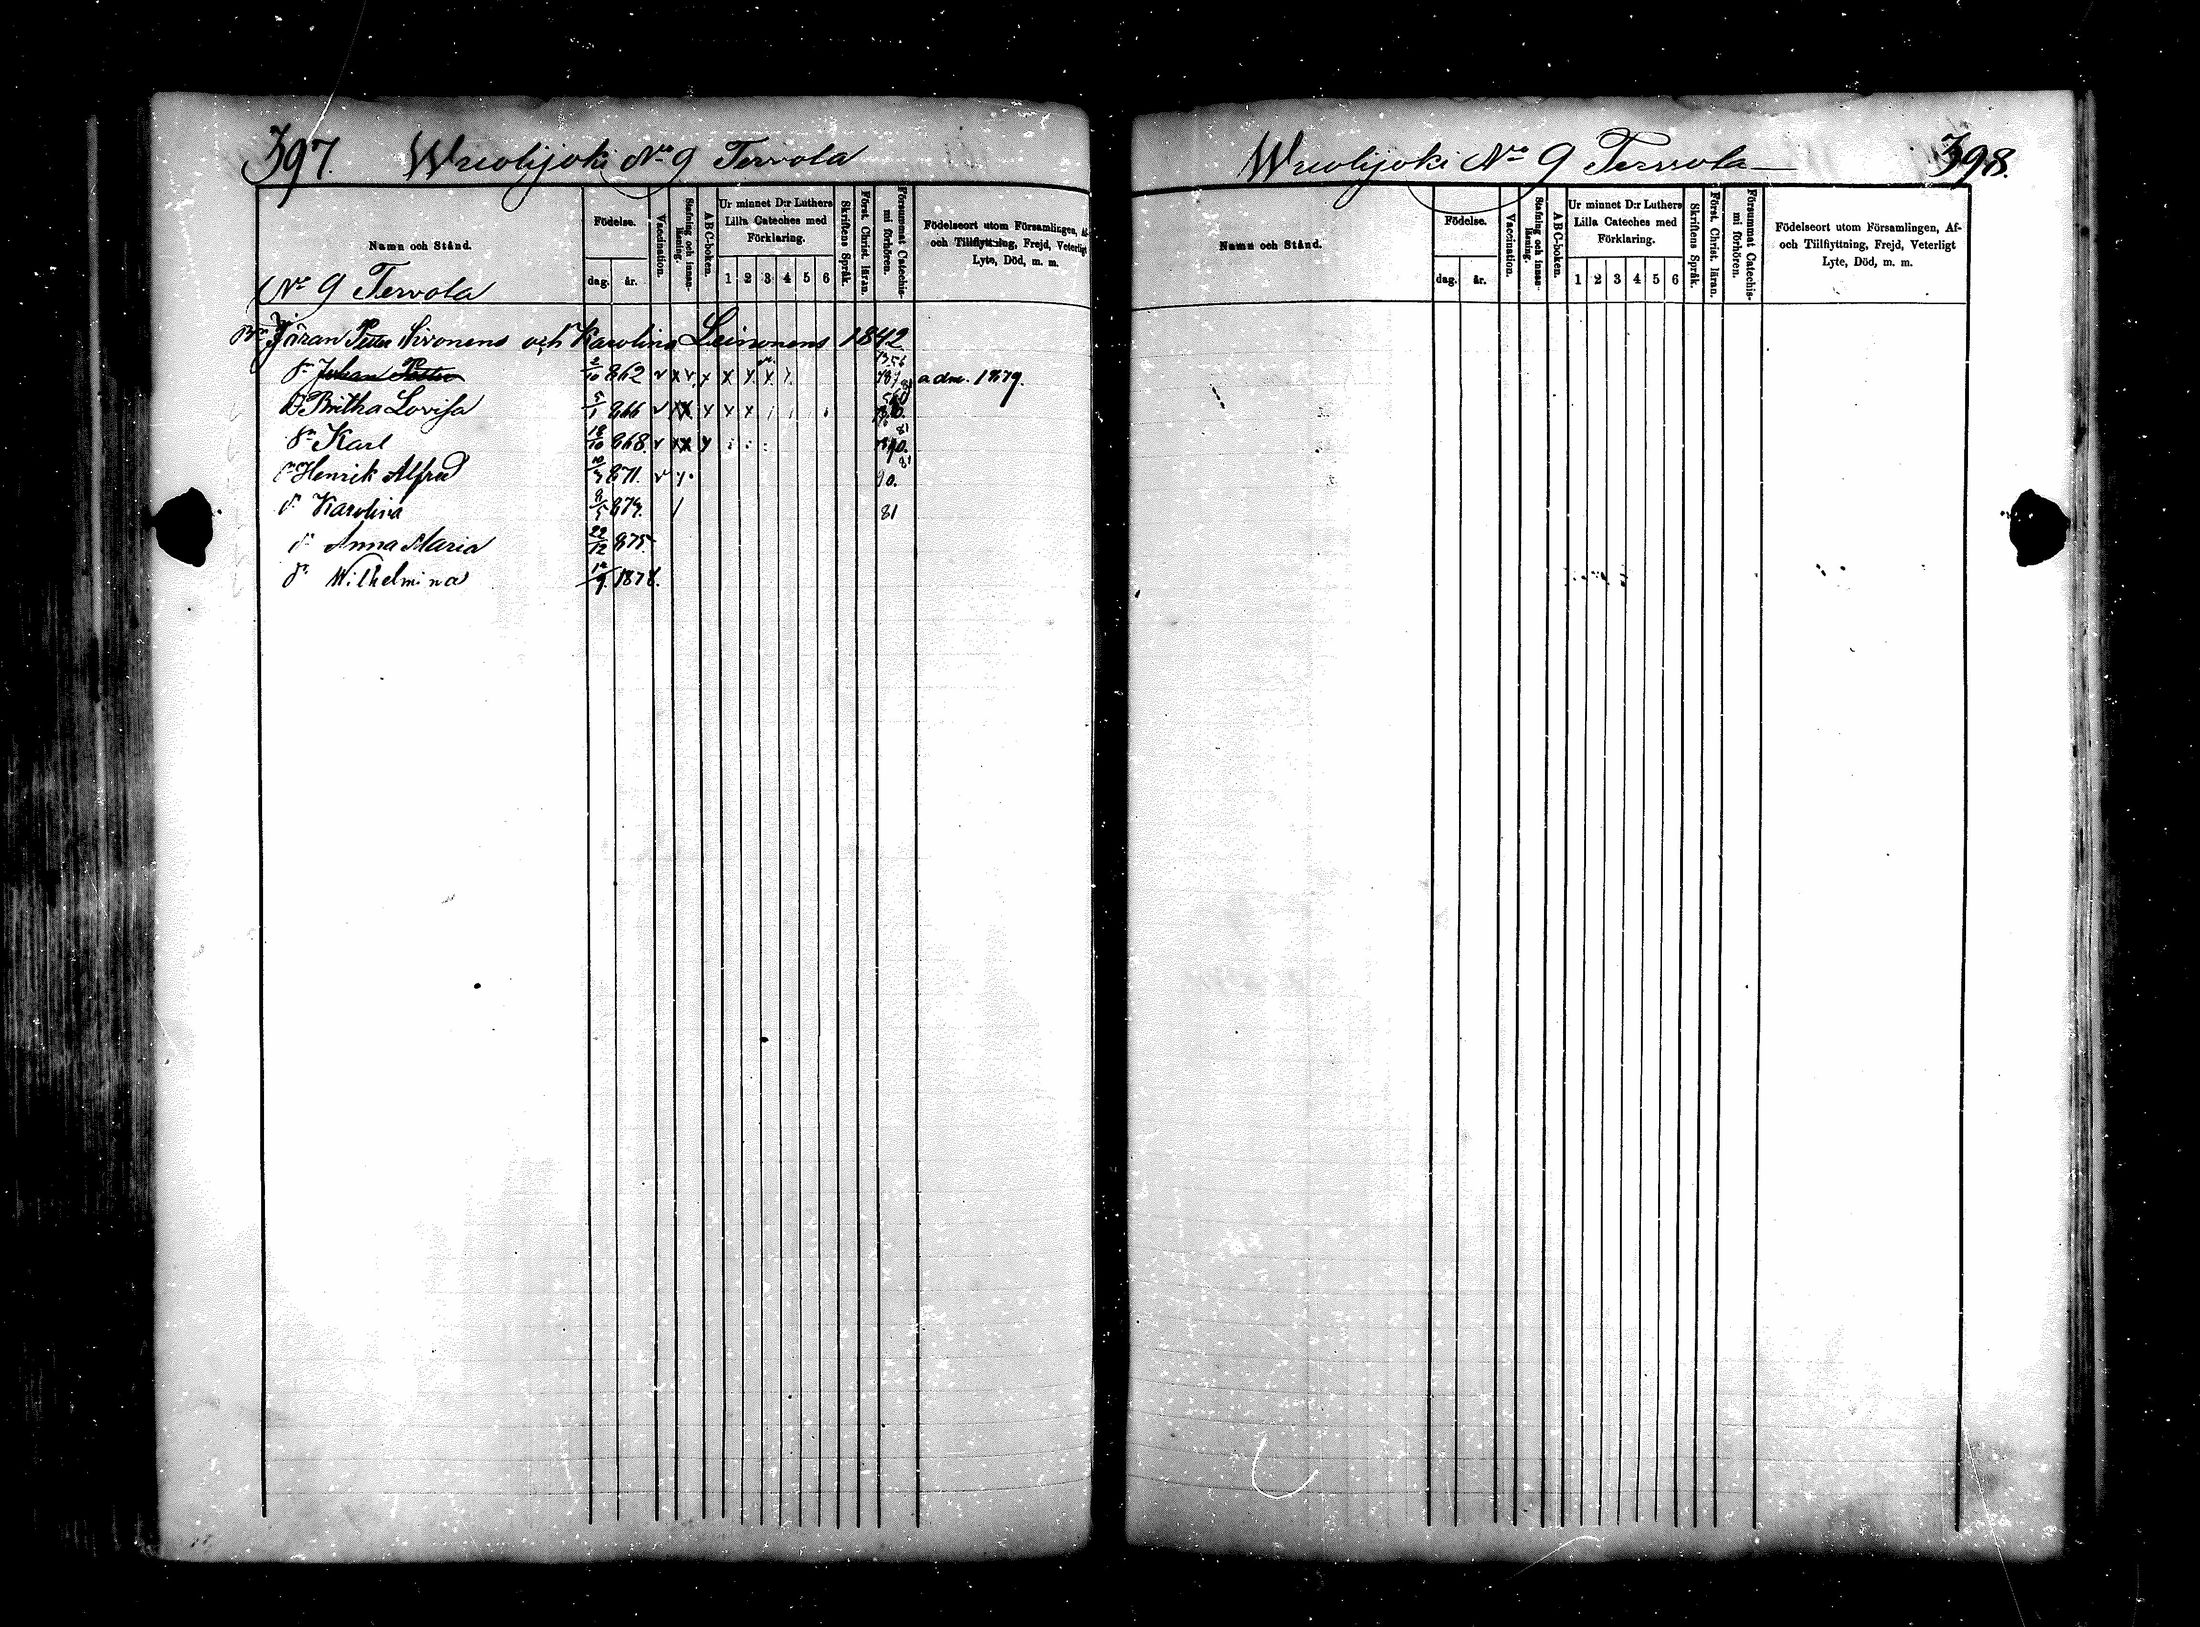 397. Wuolijoki No 9 Tervola
Namn och Stånd.
Födelse.
dag. år.
Vaccination.
Stafning och innan-läsning.
ABC-boken.
Ur minnet D:r Luthers
Lilla Cateches med
Förklaring.
1 2 3 4 5 6
Skriftens Språk.
Först. Christ. läran.
Försummat Catechis-
mi förhören.
Födelseort utom Församlingen, Af-
och Tillflyttning, Frejd, Veterligt
Lyte, Död, m. m.
No 9 Tervola
Göran Petter Sivonens och Karolina Leinonens 1842
Sn Johan Petter 2/10 862 adm. 1879.
Dr Britha Lovisa 5/1 866
Sn Karl 18/10 868. 81
Sn Henrik Alfred 10/3 871. 81
Dr Karolina 81
Dr Anna Maria 22/12 875
Dr Wilhelmina 1878.
Wuolijoki No 9 Tervola 398.
Namn och Stånd.
Födelse.
dag. år.
Vaccination.
Stafning och innan-läsning.
ABC-boken.
Ur minnet D:r Luthers
Lilla Cateches med
Förklaring.
1 2 3 4 5 6
Skriftens Språk.
Först. Christ. läran.
Försummat Catechis-
mi förhören.
Födelseort utom Församlingen, Af-
och Tillflyttning, Frejd, Veterligt
Lyte, Död, m. m.